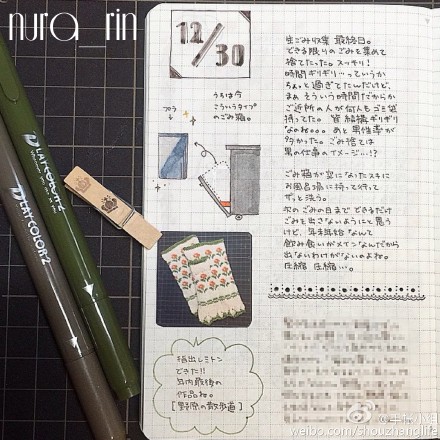 nura_rin
12/30
うちは今
こういうタイプ
のごみ箱。
フタ
指出しミトン
できた!!
年内最後の
作品ね。
[野原の散歩道]
生ごみ収集 最終日。
できる限りのごみを集めて
捨てたった。スッキリ!
時間ギリギリ…っていうか
ちょっと過ぎてたんだけど、
まぁ そういう時間だからか
ご近所の人が何人もゴミ袋
持ってた。皆 結構ギリギリ
なのね。。。あと 男性率が
多かった。ごみ捨ては
男の仕事のイメージ…!?
ごみ箱が空になったスキに
お風呂場に持って行って
ザッと洗う。
次の ごみの日まで できるだけ
ごみを出さないようにと思う
けど、年末年始なんて
飲み食いがメインなんだから
出ないわけがないのよね。
圧縮 圧縮…。
PLAYCOLOR2
PLAYCOLOR2
@手帐小组
weibo.com/shouzhanglife